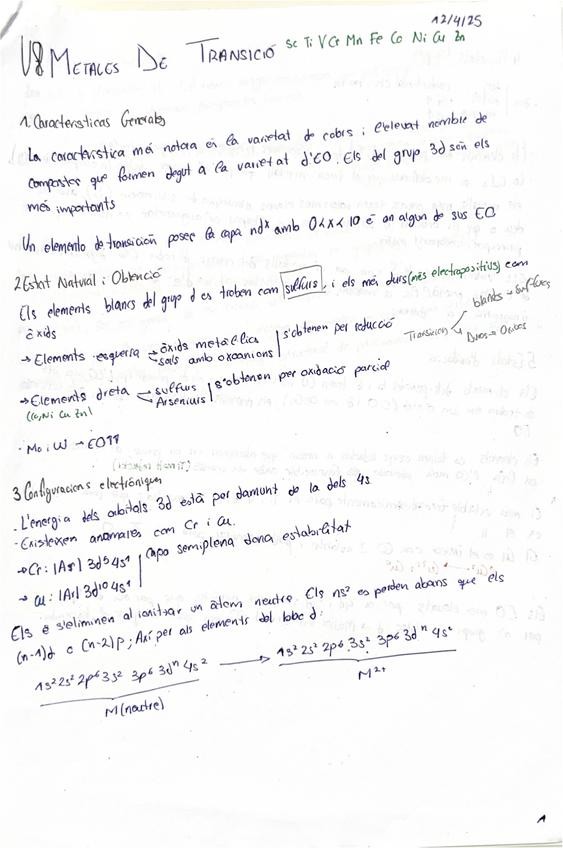 12/4/25
V8 METALES DE TRANSICIÓ Sc Ti V Cr Mn Fe Co Ni Cu Zn
1. Caracteristicas Generales
La característica més notora és la varietat de i l'elevat nombre de
compostos que formen degut a la varietat d'EO. Els del grup 3d són els
més importants
Un elemento de transición posee la capa ndˣ amb 0<x<10 en algun de sus EO
2 Estat Natural i Obtenció
Els elements blancs del grup d es troben com sulfurs, i els més durs (més electropositius) com
òxids
→ Elements esquerra òxids metàl·lics
sals amb oxoanions s'obtenen per reducció
Transición blands → Sulfuros
Duros → Oxidos
→ Elements dreta sulfurs
Arseniurs s'obtenen per oxidació parcial
(Co, Ni Cu Zn)
· Mo i W → EO
3 Configuracions electròniques
- L'energia dels orbitals 3d està per damunt de la dels 4s
- Existeixen anomalies com Cr i Cu.
→ Cr: |Ar| 3d⁵ 4s¹
→ Cu: |Ar| 3d¹⁰ 4s¹ Capa semiplena dona estabilitat
Els e⁻ s'eliminen al ionitzar un àtom neutre. Els ns² es perden abans que els
(n-1)d o (n-2)p; Així per als elements del bloc d:
1s² 2s² 2p⁶ 3s² 3p⁶ 3dⁿ 4s² → 1s² 2s² 2p⁶ 3s² 3p⁶ 3dⁿ 4s⁰
M (neutre) M²⁺
1